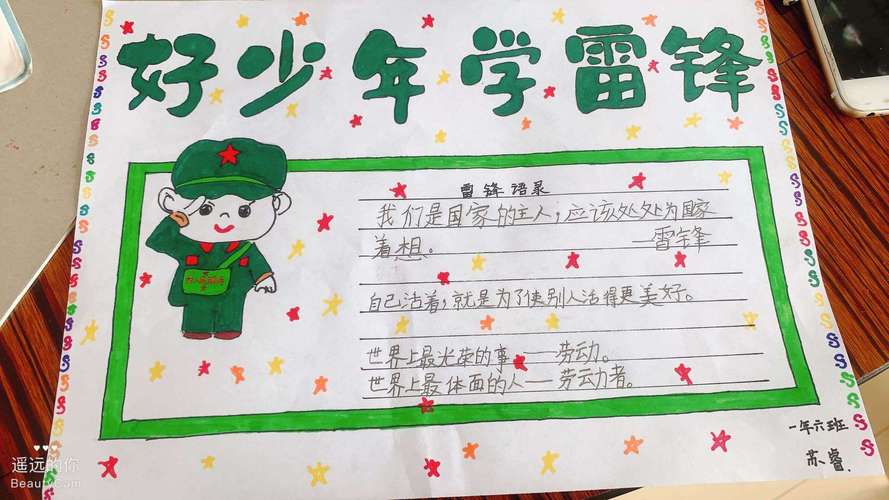 好少年学雷锋
雷锋语录
我们是国家的主人，应该处处为国家
着想。 —雷锋
自己活着，就是为了使别人活得更美好。
世界上最光荣的事——劳动。
世界上最体面的人——劳动力者。
一年六班
苏睿
遥远的你
BeautyCam